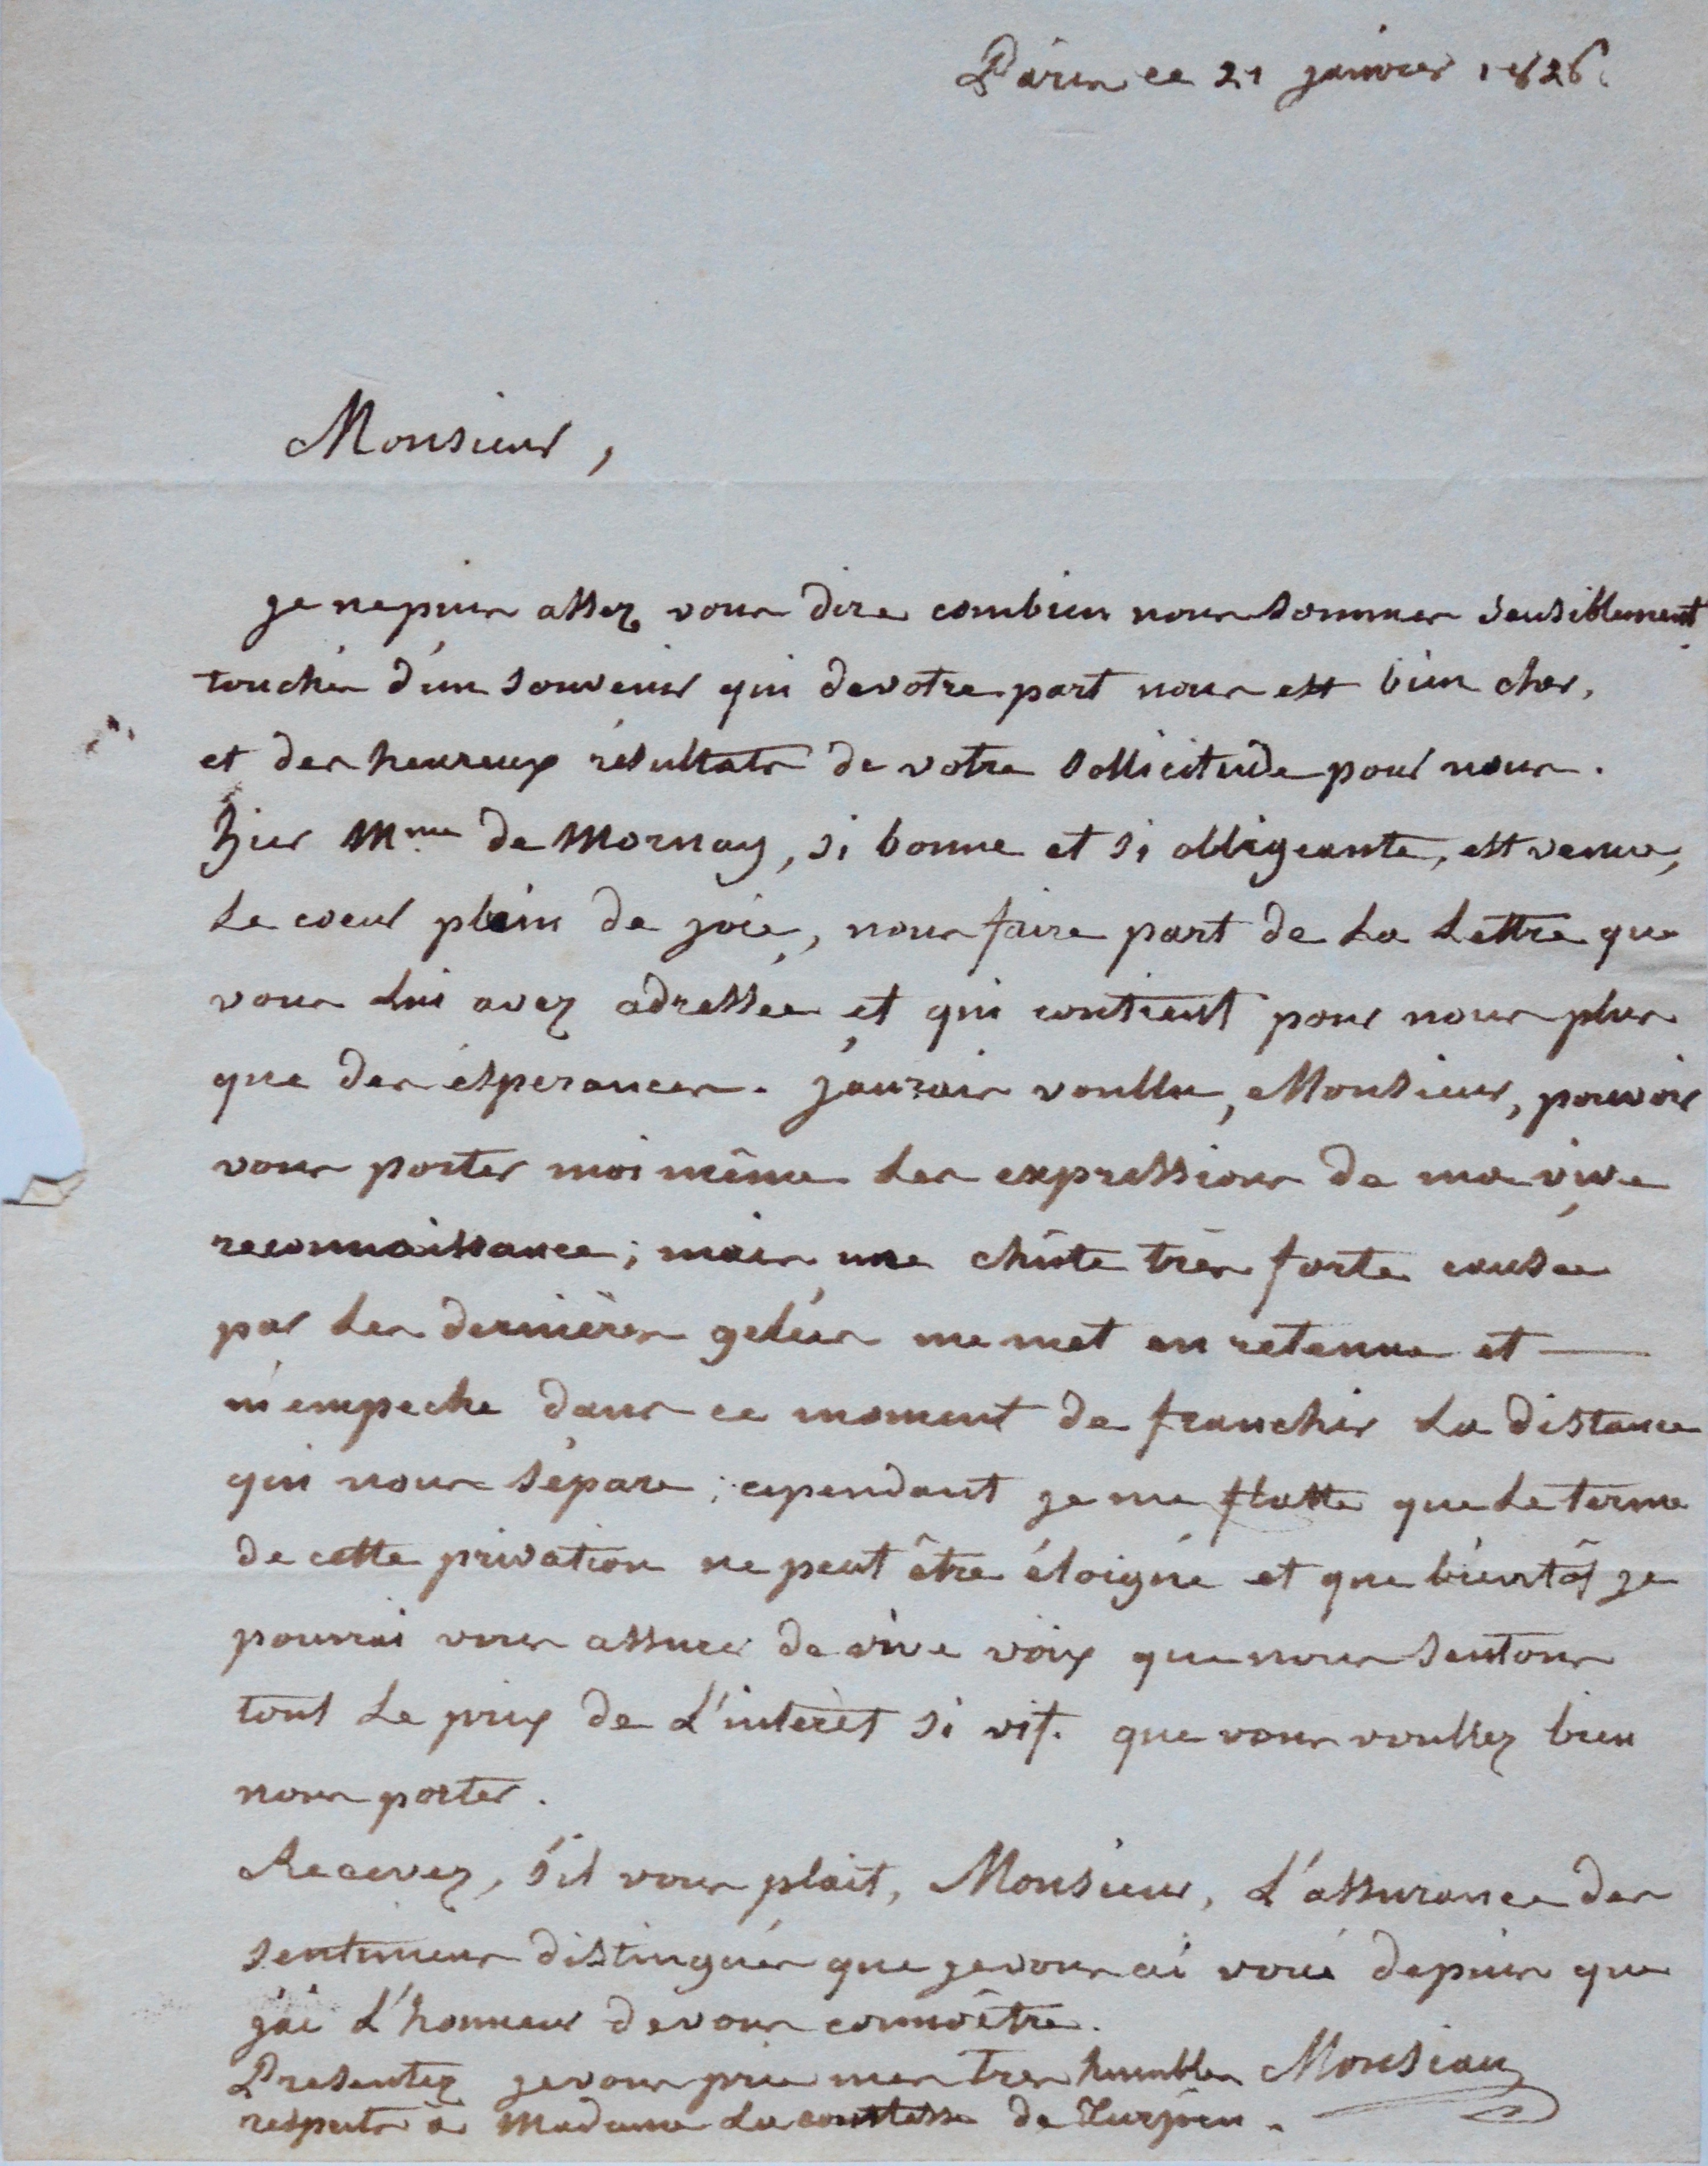 Paris ce 21 janvier 1826.
Monsieur,
je ne puis assez vous dire combien nous sommes sensiblement
touchés d'un souvenir qui de votre part nous est bien cher,
et des heureux résultats de votre sollicitude pour nous.
hier Mme de Mornay, si bonne et si obligeante, est venue,
Le coeur plein de joie, nous faire part de La Lettre que
vous Lui avez adressée et qui contient pour nous plus
que des ésperances. j'aurais voullu, Monsieur, pouvoir
vous porter moi même Les expressions de ma vive
reconnaissance; mais une chûte très forte causée
par Les dernières gelées me met en retenue et —
m'empeche dans ce moment de franchir La distance
qui nous sépare; cependant je me flatte que Le terme
de cette privation ne peut être éloigné et que bientôt je
pourrai vous assurer de vive voix que nous sentons
tout Le prix de L'intérèt si vif. que vous voullez bien
nous porter.
Recevez, s'il vous plait, Monsieur, L'assurance des
sentimens distingués que je vous ai voué depuis que
j'ai L'honneur de vous connoître.
Presentez je vous prie mes tres humbles Monsiau
respects à Madame La comtesse de Turpin.